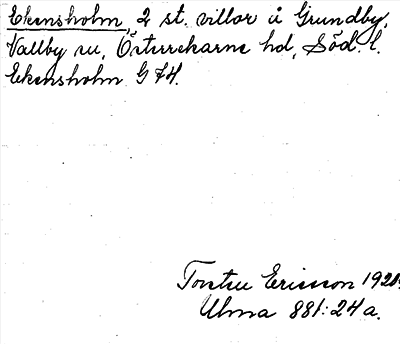 Ekensholm, 2 st. villor å Grundby,
Vallby sn, Österrekarne hd, Söd. l.
Ekensholm G 74.
Torsten Ericsson 1920.
Ulma 881:24a.